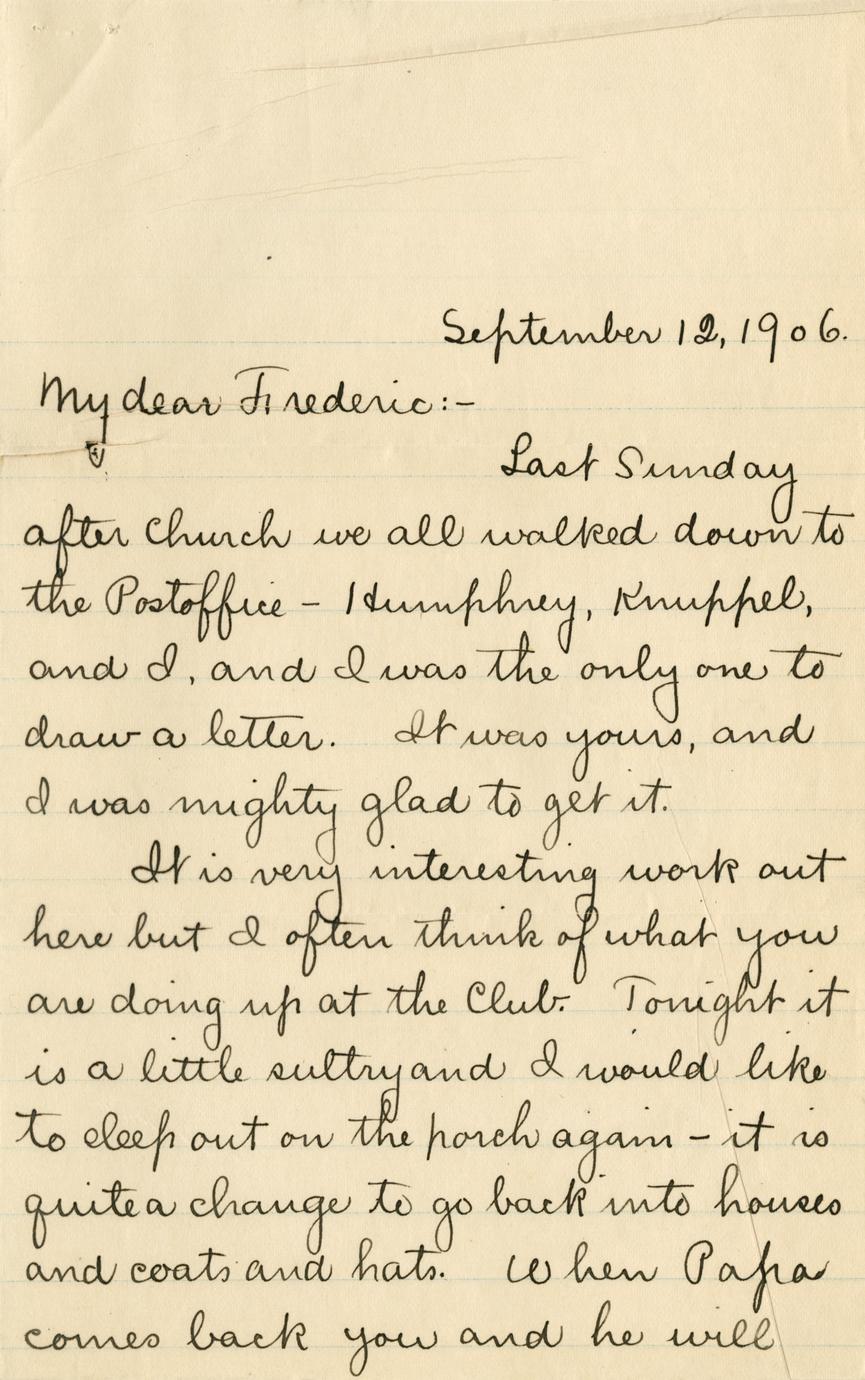 September 12, 1906.
My dear Frederic:-
Last Sunday
after church we all walked down to
the Postoffice - Humphrey, Knuppel,
and I, and I was the only one to
draw a letter. It was yours, and
I was mighty glad to get it.
It is very interesting work out
here but I often think of what you
are doing up at the Club. Tonight it
is a little sultry and I would like
to sleep out on the porch again - it is
quite a change to go back into houses
and coats and hats. When Papa
comes back you and he will